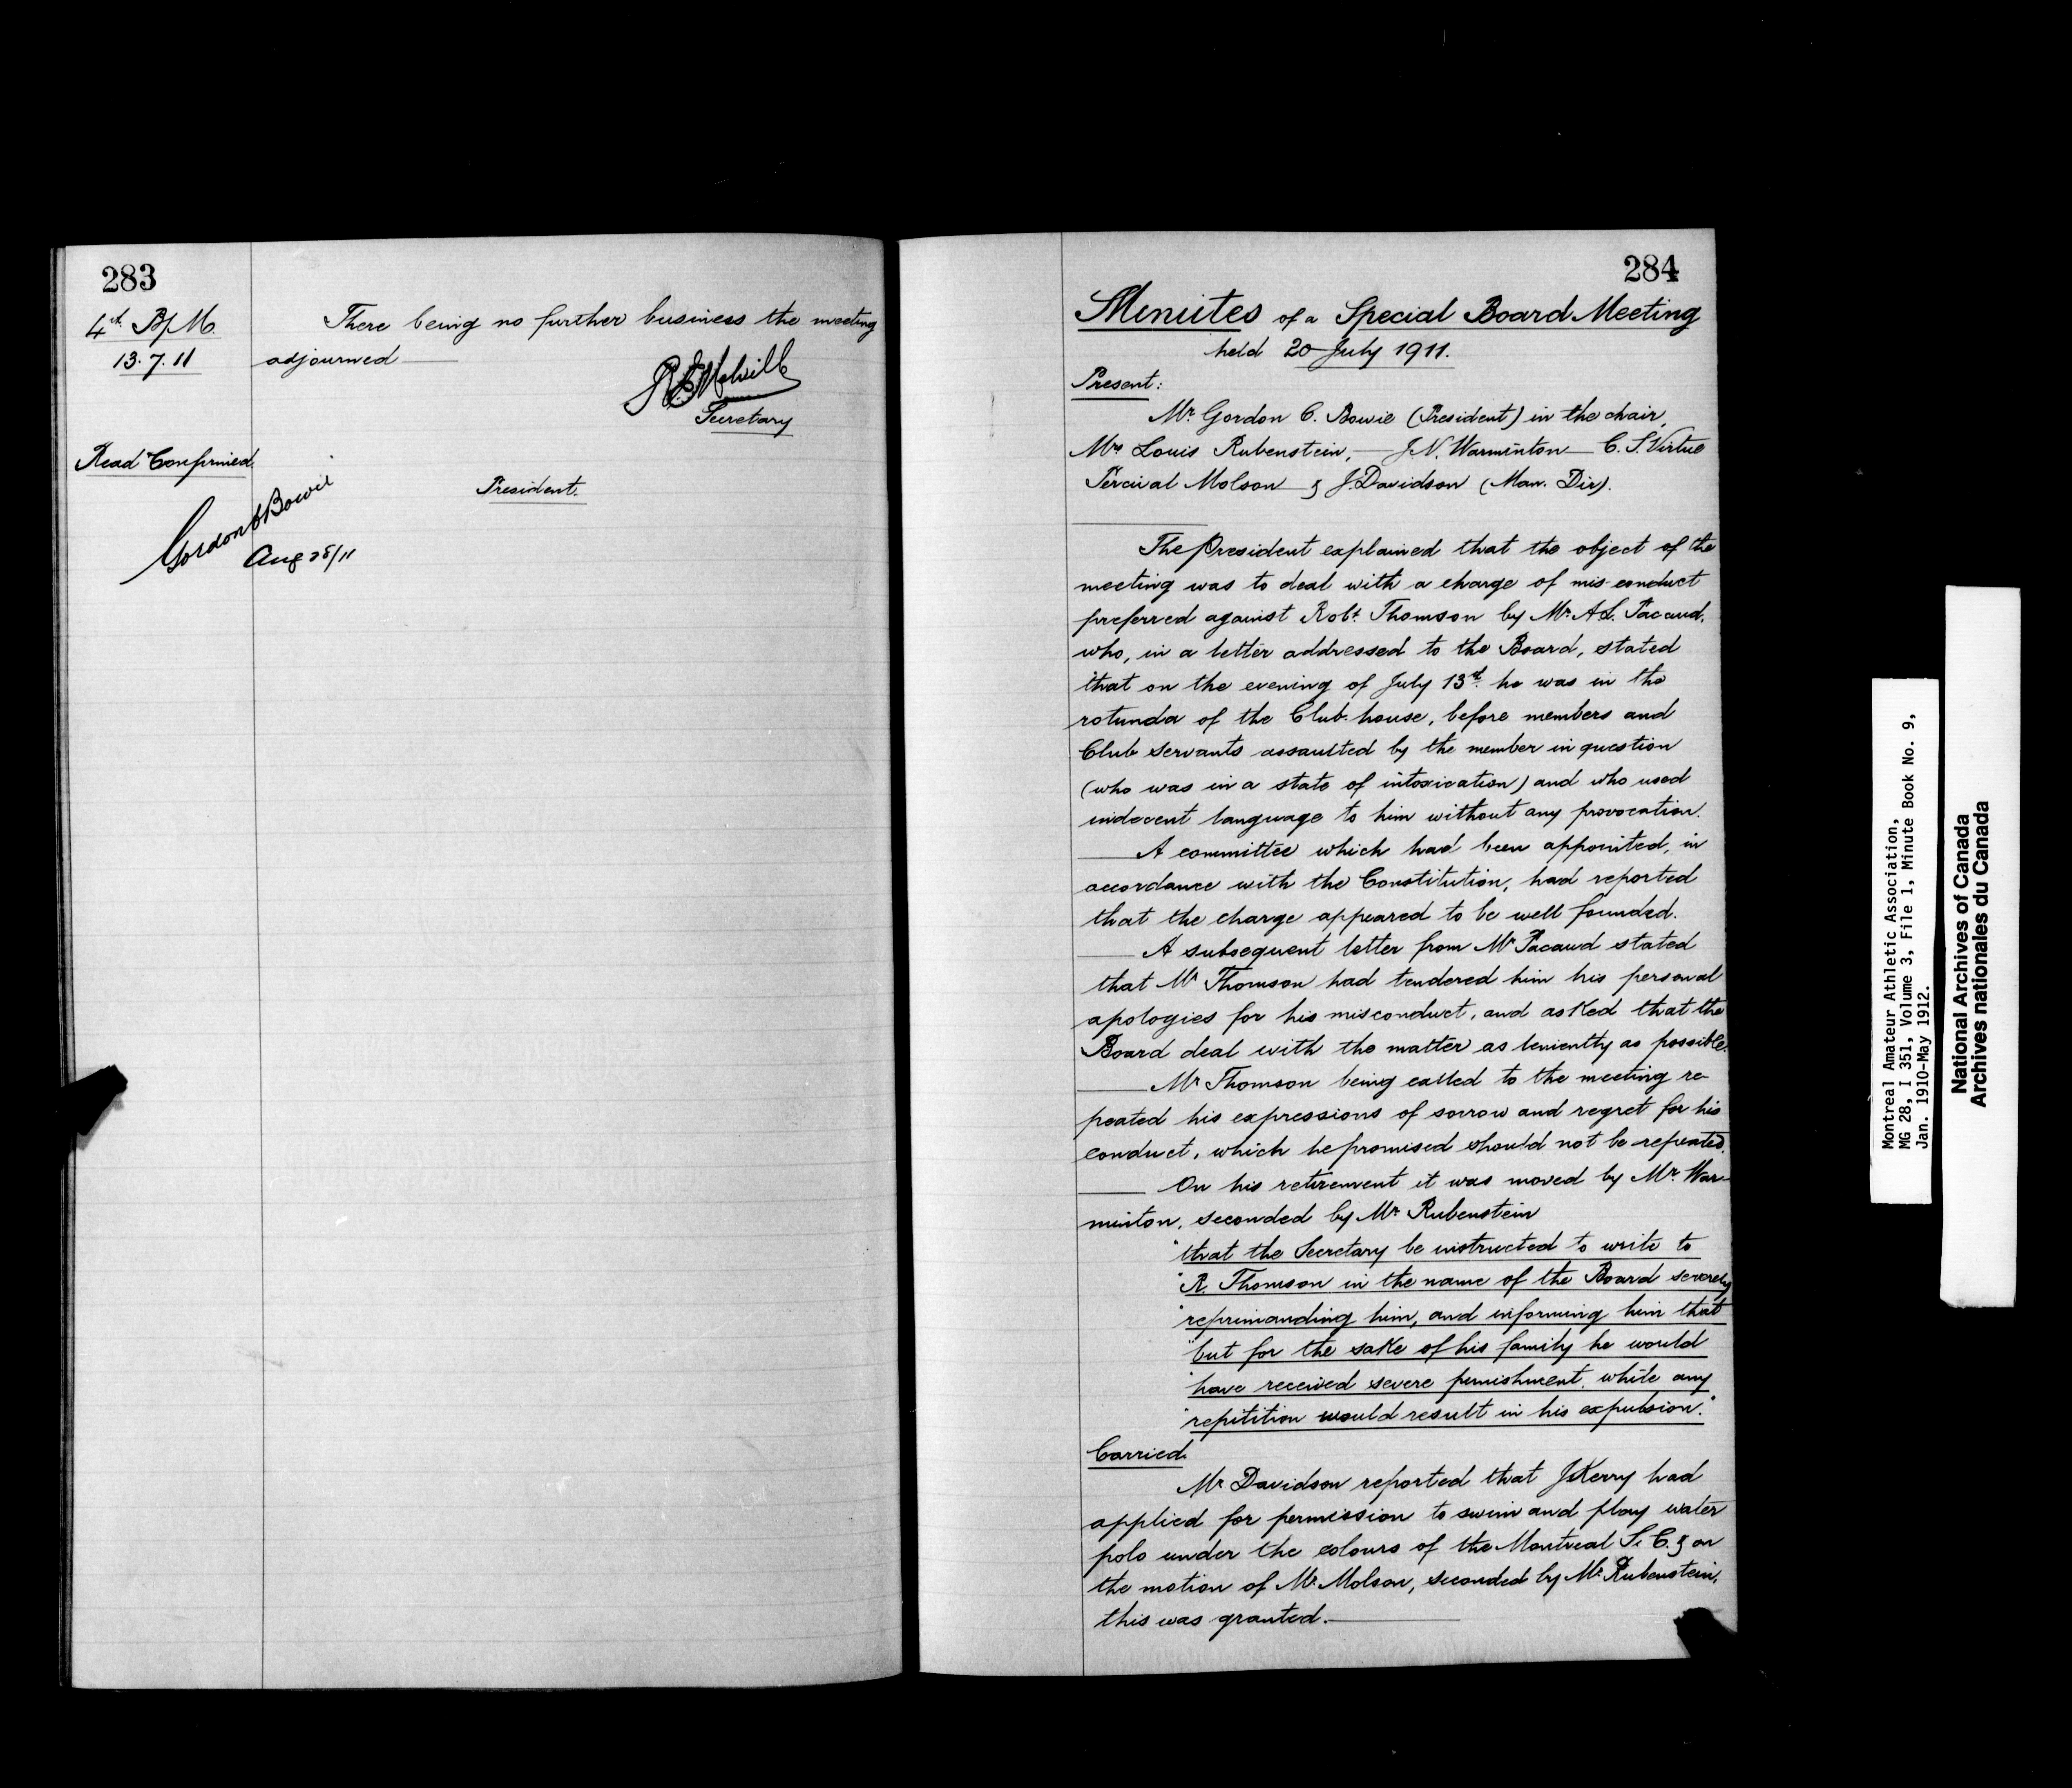 283
4th B/M.
13.7.11
There being no further business the meeting
adjourned
Secretary
Read Confirmed
President.
Gordon C Bowie
Aug 28/11
284
Minutes of a Special Board Meeting
held 20 July 1911.
Present:
Mr. Gordon C. Bowie (President) in the chair,
Mrs Louis Rubenstein, J.N. Warminton C.S. Virtue
Percival Molson & J. Davidson (Man. Dir).
The President explained that the object of the
meeting was to deal with a charge of mis-conduct
preferred against Robt. Thomson by Mr. A.L. Pacaud,
who, in a letter addressed to the Board, stated
that on the evening of July 13th. he was in the
rotunda of the Club-house, before members and
Club servants assaulted by the member in question
(who was in a state of intoxication) and who used
indecent language to him without any provocation.
A committee which had been appointed, in
accordance with the Constitution, had reported
that the charge appeared to be well founded.
A subsequent letter from Mr Pacaud stated
that Mr Thomson had tendered him his personal
apologies for his misconduct, and asked that the
Board deal with the matter as leniently as possible.
Mr Thomson being called to the meeting re-
peated his expressions of sorrow and regret for his
conduct, which he promised should not be repeated.
On his retirement it was moved by Mr. War-
minton, seconded by Mr Rubenstein
"that the Secretary be instructed to write to
"R. Thomson in the name of the Board severely
"reprimanding him, and informing him that
"but for the sake of his family he would
"have received severe punishment, while any
"repitition would result in his expulsion."
Carried.
Mr Davidson reported that J Kerry had
applied for permission to swim and play water
polo under the colours of the Montreal S. C. & on
the motion of Mr. Molson, seconded by Mr. Rubenstein,
this was granted.
Montreal Amateur Athletic Association,
MG 28, I 351, Volume 3, File 1, Minute Book No. 9,
Jan. 1910-May 1912.
National Archives of Canada
Archives nationales du Canada